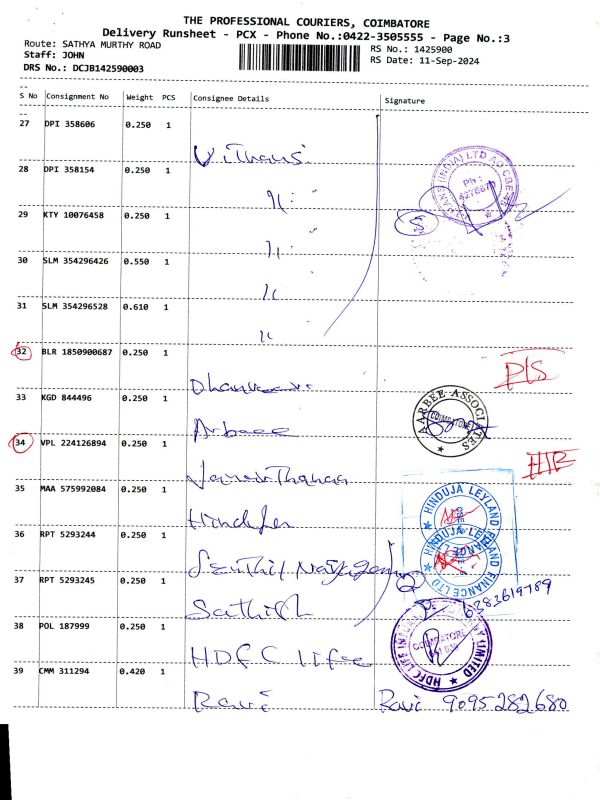 THE PROFESSIONAL COURIERS, COIMBATORE
Delivery Runsheet - PCX - Phone No.:0422-3505555 - Page No.:3
Route: SATHYA MURTHY ROAD
RS No.: 1425900
Staff: JOHN
RS Date: 11-Sep-2024
DRS No.: DCJB142590003
S No Consignment No Weight PCS Consignee Details Signature
27 DPI 358606 0.250 1
28 DPI 358154 0.250 1
29 KTY 10076458 0.250 1
30 SLM 354296426 0.550 1
31 SLM 354296528 0.610 1
32 BLR 1850900687 0.250 1
D/S
33 KGD 844496 0.250 1
Arbeee
AARBEE ASSOCIATES
COIMBATORE
34 VPL 224126894 0.250 1
35 MAA 575992084 0.250 1
HINDUJA LEYLAND FINANCE LTD
36 RPT 5293244 0.250 1
Senthil
37 RPT 5293245 0.250 1
Sathish
6383619789
38 POL 187999 0.250 1
HDFC life
COIMBATORE
HDFC LIFE LIMITED
39 CMM 311294 0.420 1
Ravi
Ravi 9095282680